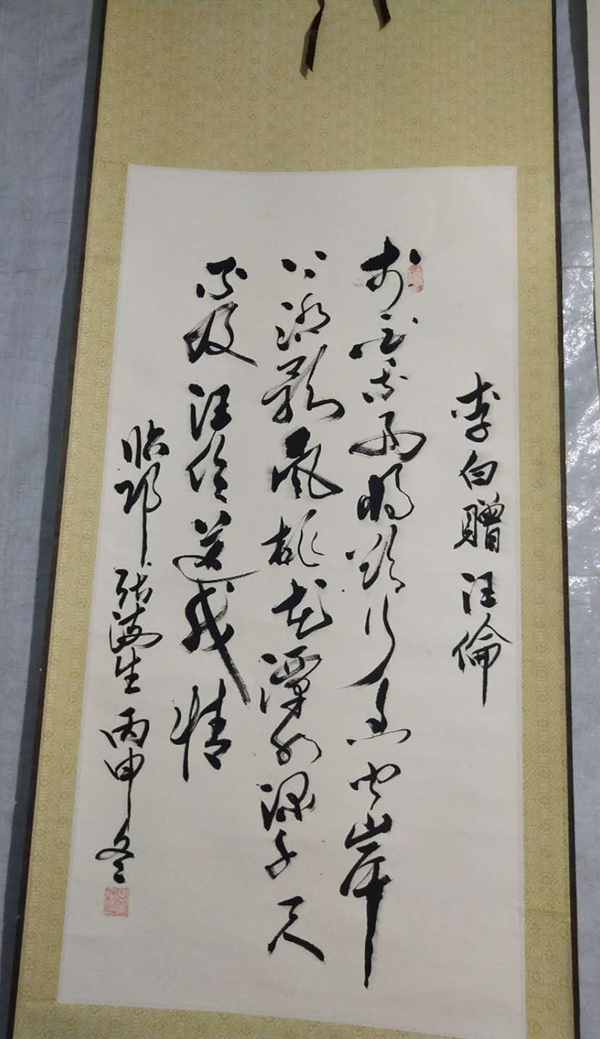 李白贈汪倫
李白乘舟將欲行忽聞岸
上踏歌聲桃花潭水深千尺
不及汪倫送我情
臨邛張海生丙申冬